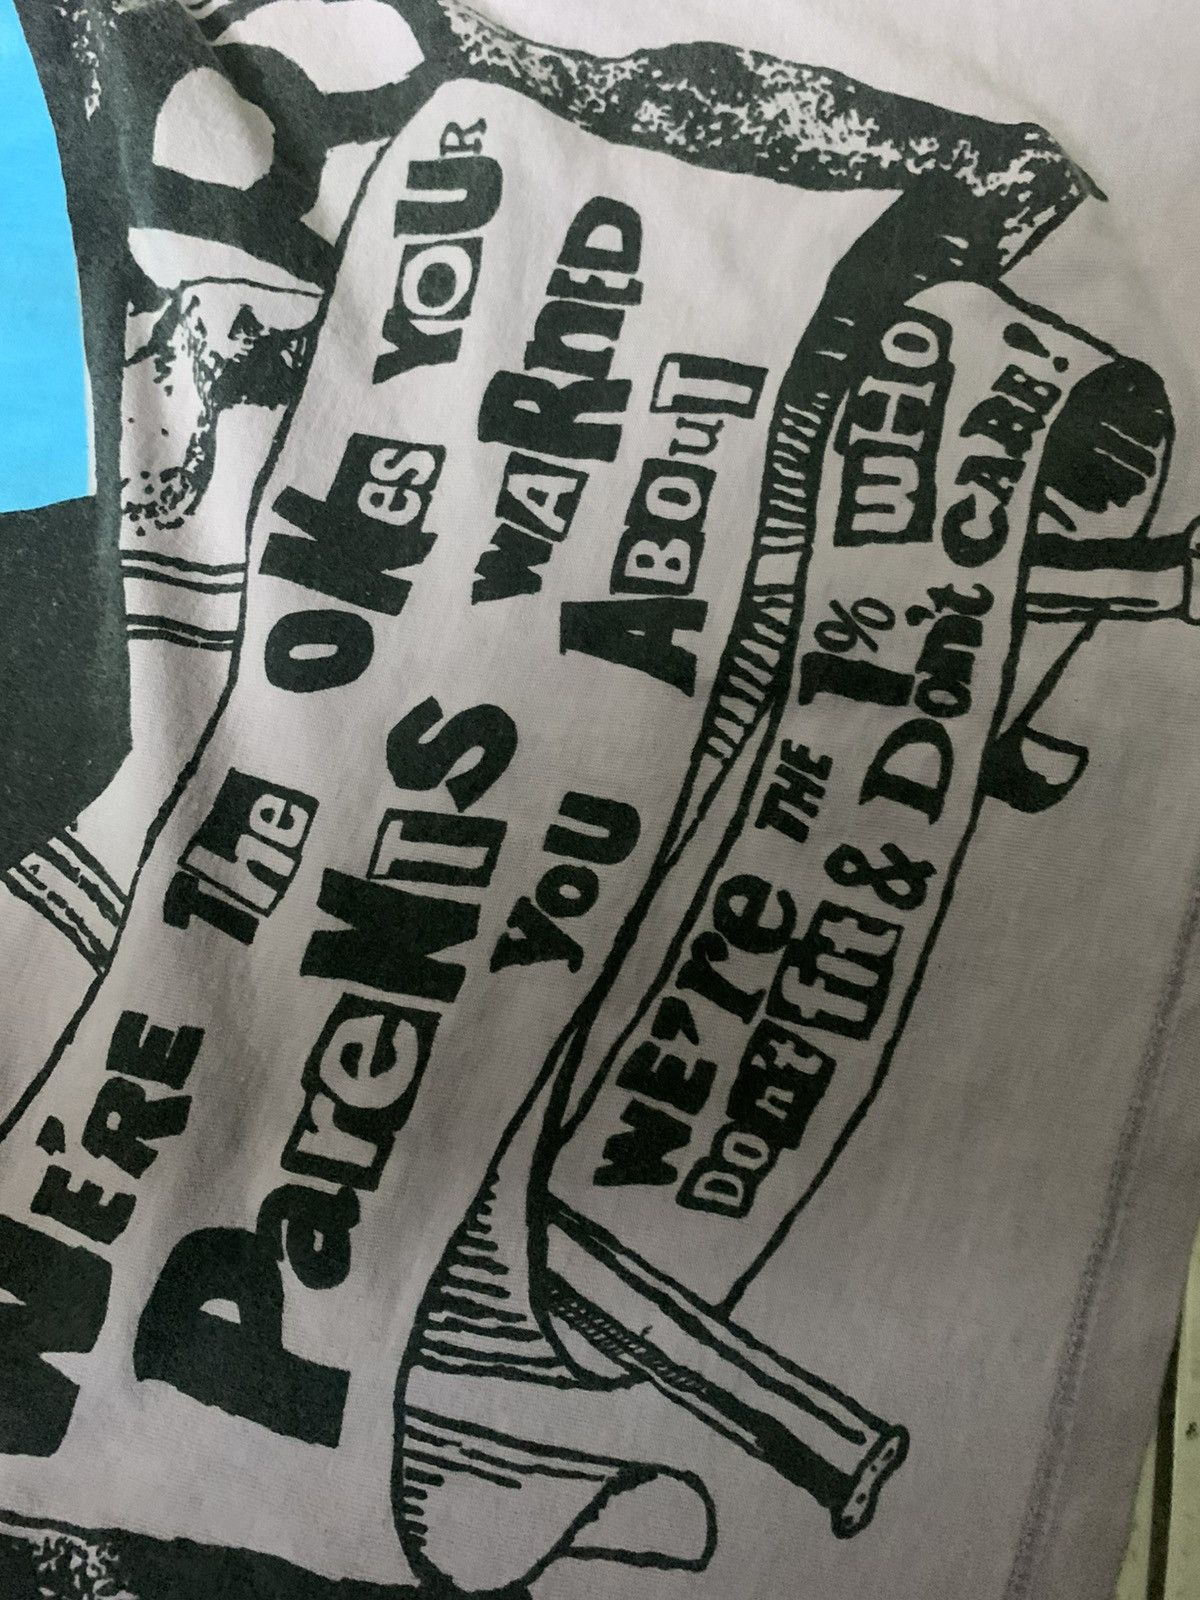 WE'RE The OKes YOUR
PareNTS WARnED
YoU ABOuT
WE're THE 1% WHO
Don't fit & Don't CARE!